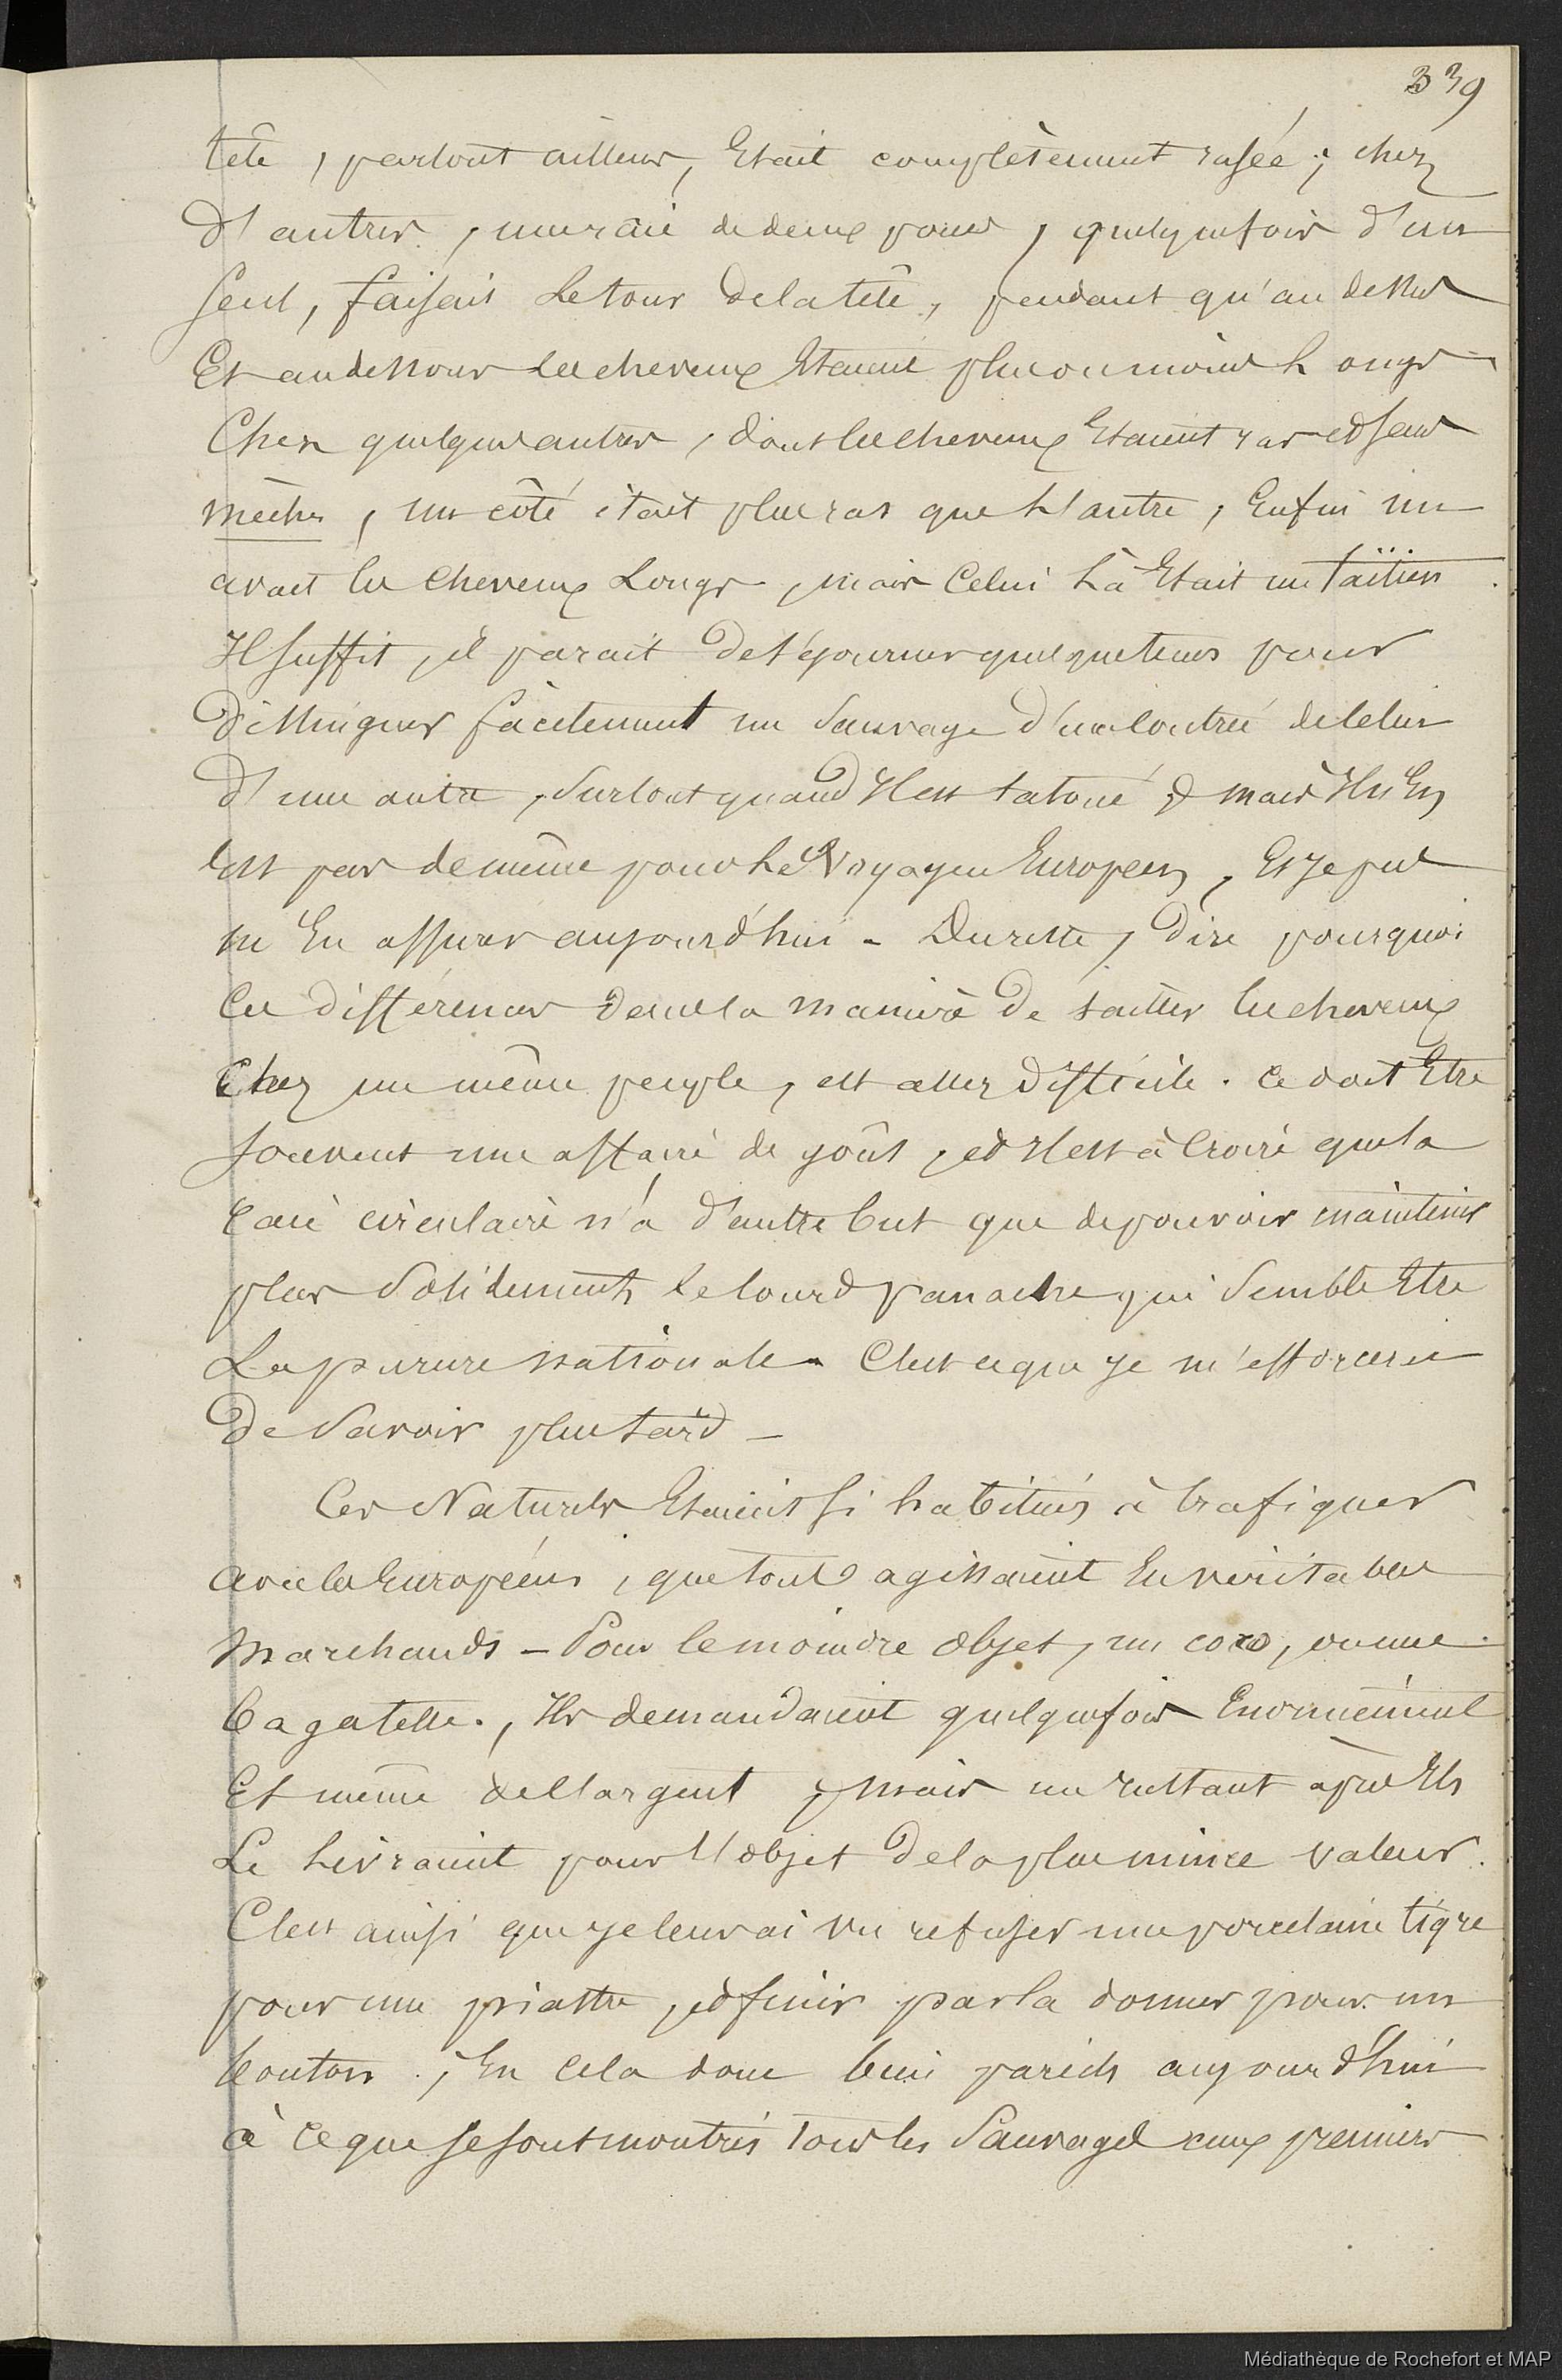 339
tête, partout ailleurs, Etait complètement rasée ; chez
d'autres, une raie de deux pouces, quelquefois d'un
seul, faisait le tour de la tête, pendant qu'au dessus
Et au dessous les cheveux Etaient plus ou moins Longs
Chez quelques autres, dont les cheveux Etaient ras et sans
mèches, un côté était plus ras que L'autre, Enfin un
avait les cheveux Longs, mais Celui Là Etait un Taïtien.
Il suffit, il parait de séjourner quelque tems pour
distinguer facilement un Sauvage d'une Contrée de Celui
d'une autre, Surtout quand Il est tatoué ; mais Il n'En
est pas de même pour Le Voyageur Européen, Et Je pus
m'En assurer aujourd'hui - Du reste, dire pourquoi
Ces différences dans la manière de tailler les cheveux
Chez un même peuple, est assez difficile. Ce doit Etre
souvent une affaire de goût, et Il est à Croire que la
raie circulaire n'a d'autre but que de pouvoir maintenir
plus Solidement le lourd panache qui Semble Etre
La parure nationale - C'est ce que Je m'efforcerai
de Savoir plus tard -
Ces Naturels Etaient si habitués à trafiquer
avec les Européens, que tous agissaient En véritables
Marchands - Pour le moindre objet, un coco, ou une
bagatelle., Ils demandaient quelquefois Enormément
Et même de l'argent, mais un instant après Ils
Le Livraient pour l'objet de la plus mince Valeur.
C'est ainsi que Je leur ai vu refuser une porcelaine tigre
pour une piastre, et finir par la donner pour un
bouton ; En Cela donc bien pareils aujourd'hui
à Ce que se sont montrés Tous les Sauvages aux premiers
Médiathèque de Rochefort et MAP